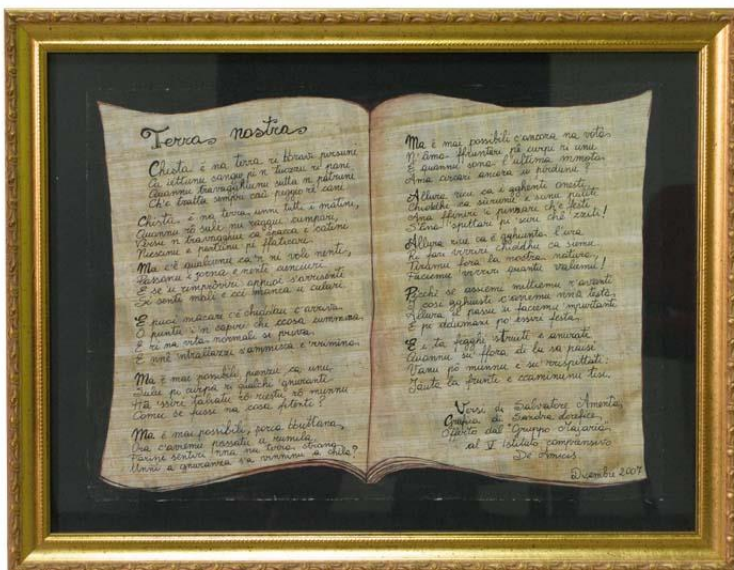 Terra nostra
Chista è na terra ri bravi pirsune
Ca iettunu sangu pi n tuzzu ri pani
Quannu travagghiunu sutta n patruni
Ch'e tratta sempri cchiù peggiu ri cani
Chista è na terra unni tutti i matini,
Quannu rô suli nu raggiu cumpari,
Versu n travagghiu ca spacca i catini
Niesciunu e partunu pi flaticari.
Ma c'è qualcunu ca 'n ni voli nenti,
Passanu i jorna e nenti
E se u rimproviri appoi s'arrisenti
Si senti mali e cci manca u culuri.
E puoi macari c'è chiddu c'arriva
O puntu i 'n sapiri chi ccosa cummina
E ri na vita normali si priva
E nnê 'ntrallazzi s'ammisca e rruvina.
Ma è mai possibili pinzu ca unu
pi curpa ri qualchi gnuranti
Ha 'ssiri tagliatu rô riestu rô munnu
Comu se fussi na cosa fitenti?
Ma è mai possibili,
Ora c'avemu passatu u
Farini sentiri 'nna na terra strana
Unni a gnuranza s'a vinninu a chilu?
Ma è mai possibili c'ancora na vota
N'âma ffruntari pê curpi ri unu
E quannu sona l'ultima
Ama circari ancora u pirdunu?
Allura ricu ca i gghenti onesti
Chiddhi ca sùrunu e sunu puliti
Ama ffiniri i pinzari ch'e testi
S'ana sputtari pi ssiri chê zziti!
Allura ricu ca è gghiunta l'ura
Ri fari viriri chiddhu ca siemu
Tiramu fora la nostra natura,
Facemu viriri quantu valemu!
Picchì se assiemi mittiemu r'avanti
I cosi gghiusti c'avemu nnâ testa
Allura u passu u facemu mpurtanti
E pi rdumani pò essiri festa.
E i to figghi struiti e anurati
Quannu su' ffora di lu sa paisi
Vanu pô munnu e su' rrispittati:
Iauta la frunti e ccaminunu tisi.
Versi di Salvatore Amenta,
Grafica di Sandra
Offerto dal "Gruppo
al V Istituto comprensivo
De Amicis.
Dicembre 2007